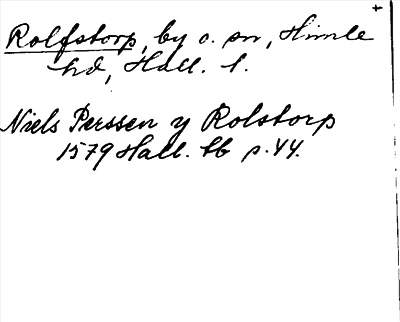 +
Rolfstorp, by o. sn, Himle
hd, Hall. l.
Niels Perssen y Rolstorp
1579 Hall. tb p. 44.